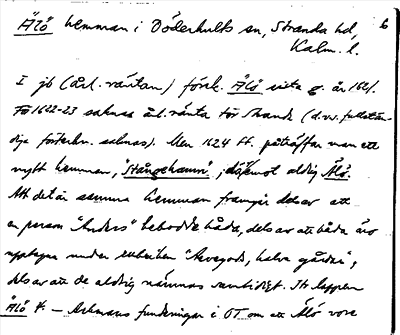 Älö hemman i Döderhults sn, Stranda hd, 6
Kalm. l.
I jb (årl. räntan) förek. Älö sista g. år 1621.
För 1622-23 saknas årl. ränta för Strand (d.v.s. fullstän-
diga förteckn. saknas). Men 1624 ff. påträffar man ett
nytt hemman, "Stångehamn"; däremot aldrig Älö.
Att det är samma hemman framgår dels av att
en person "Anders" bebodde båda, dels av att båda äro
upptagna under rubriken "Arvegods, halva gårdar",
dels av att de aldrig nämnas samtidigt. Se lappen
Älö 4. — Ahlmans funderingar i OT om att Älö vore